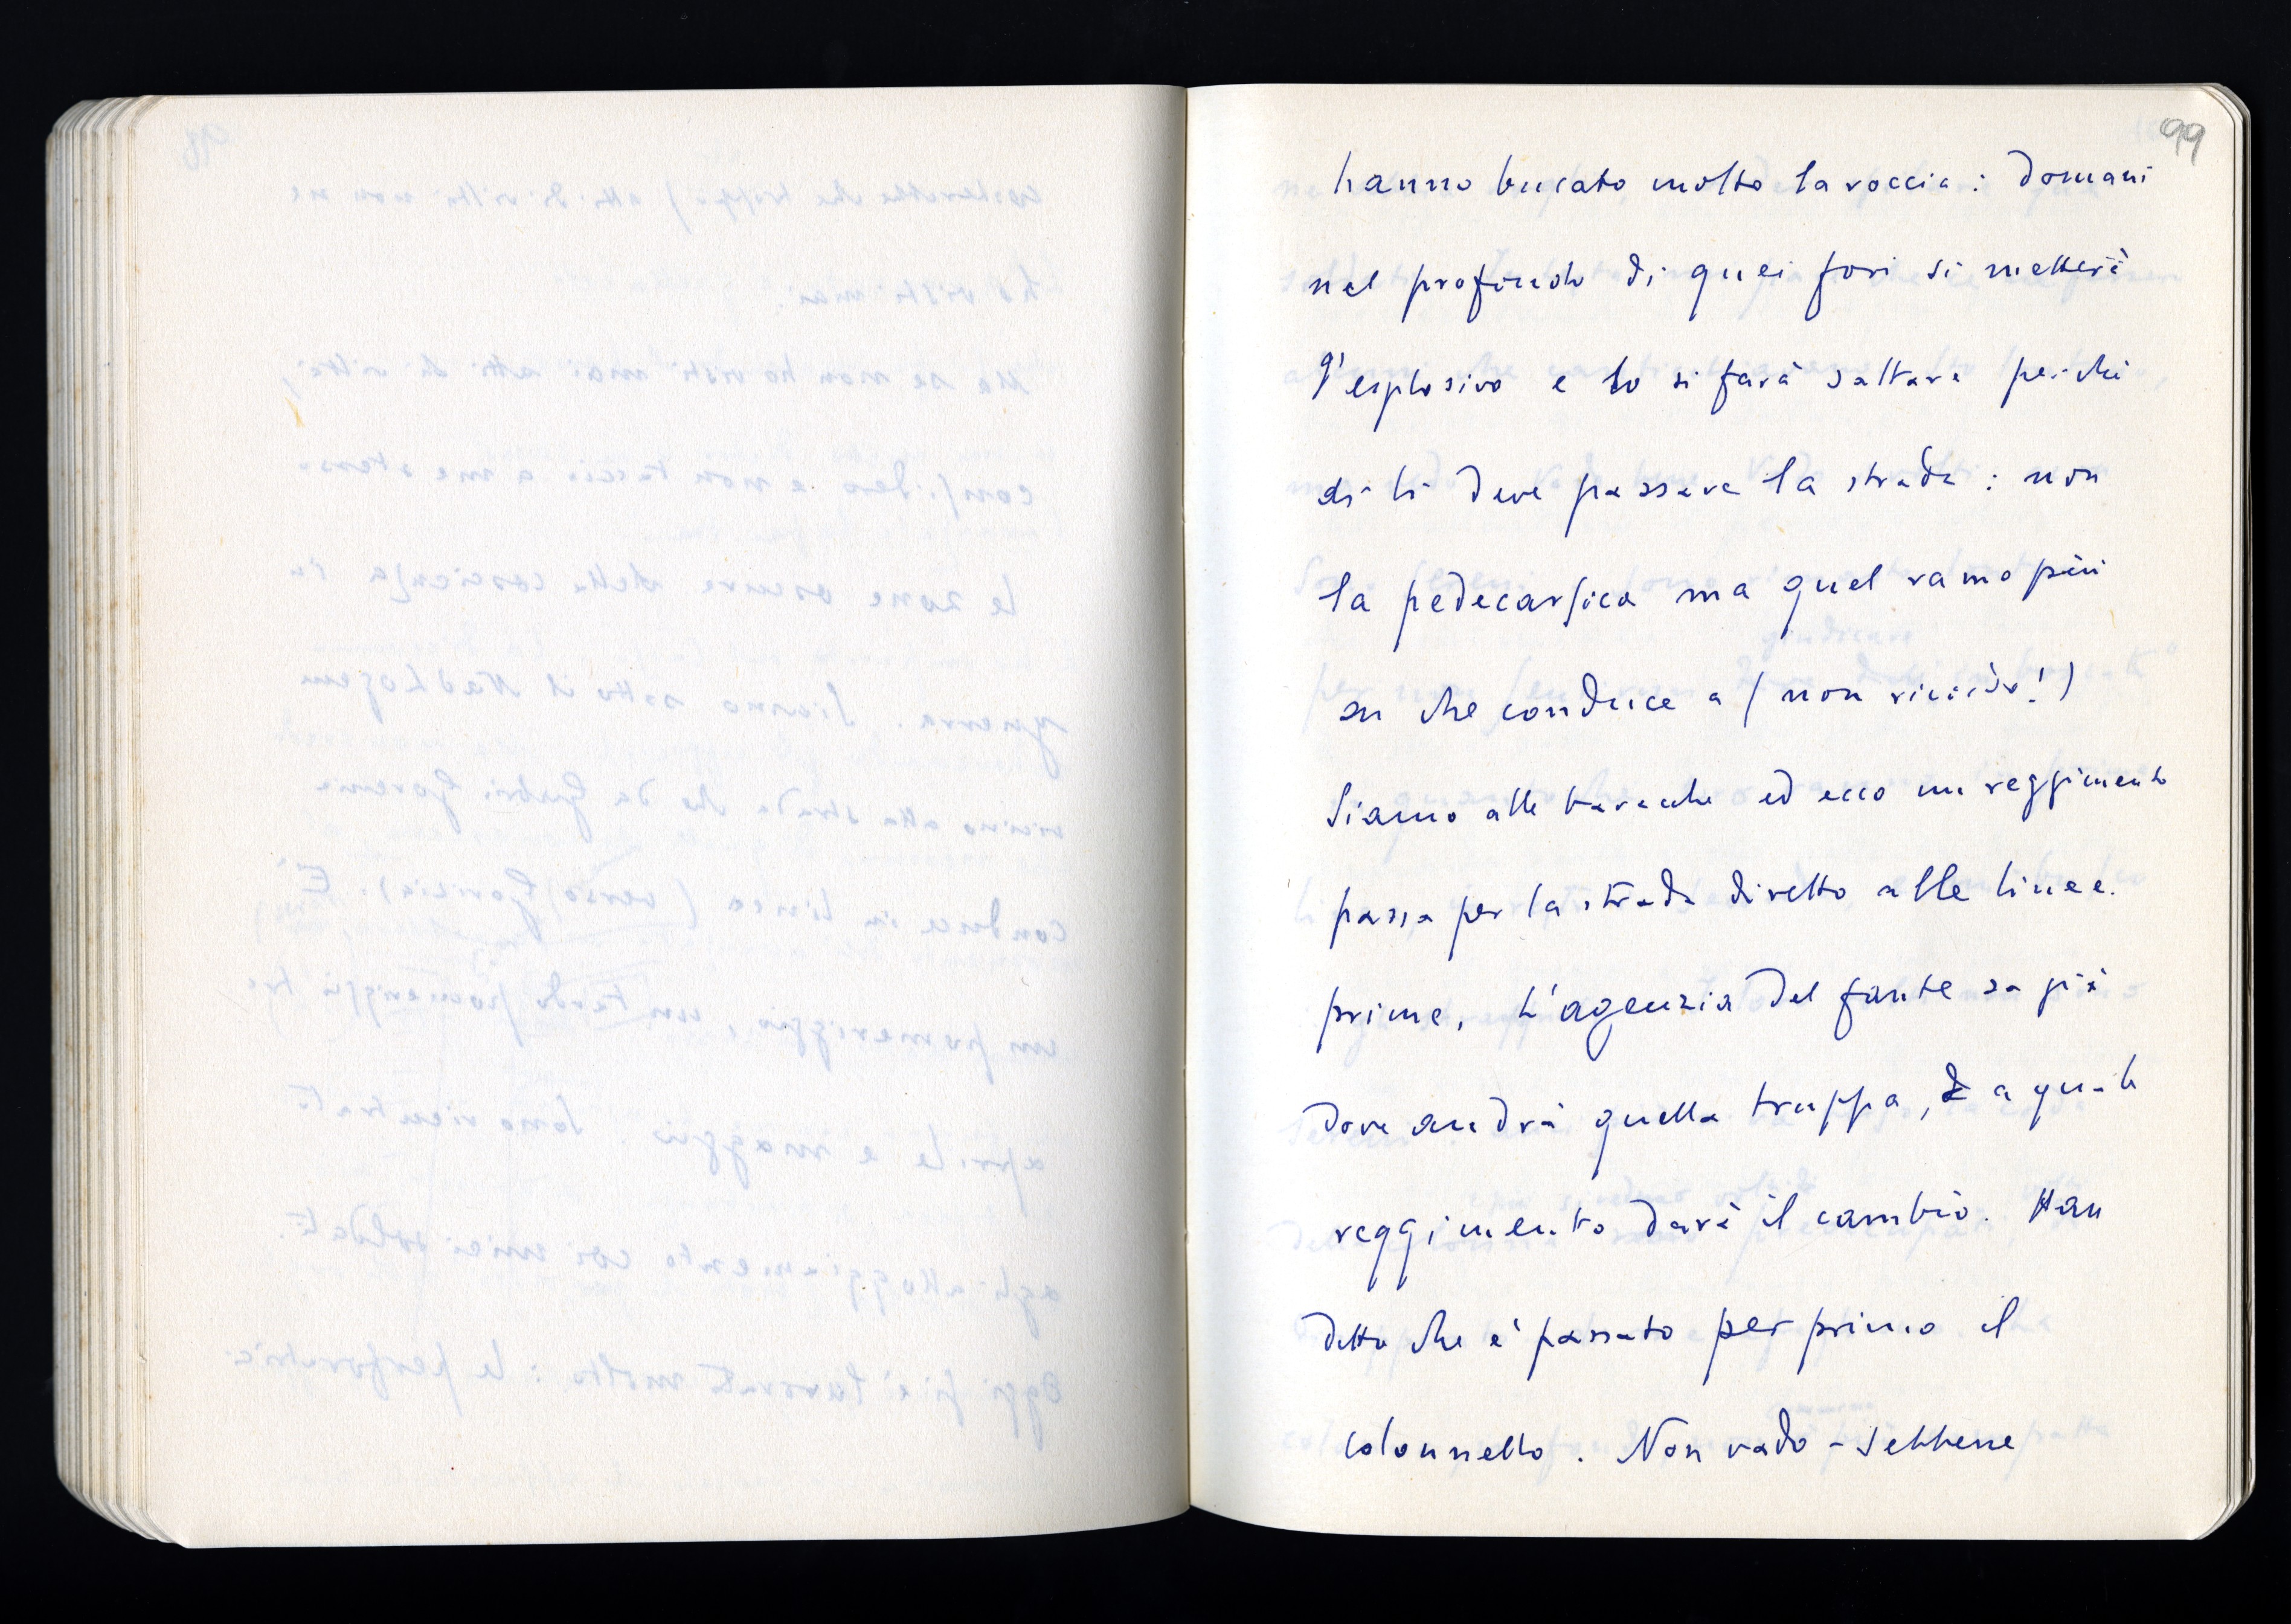 99
hanno bucato molto la roccia: domani
nel profondo di quei fori si metterà
l'esplosivo e lo si farà saltare perché
di lì deve passare la strada: non
la pedecarsica ma quel ramo più
su che conduce a (non ricordo!)
Siamo alle baracche ed ecco un reggimento
passa per la strada diretto alle linee.
prime, L'agenzia del fante sa già
dove andrà quella truppa, a quale
reggimento darà il cambio. Han
detto che è passato per primo il
colonnello. Non vado - sebbene